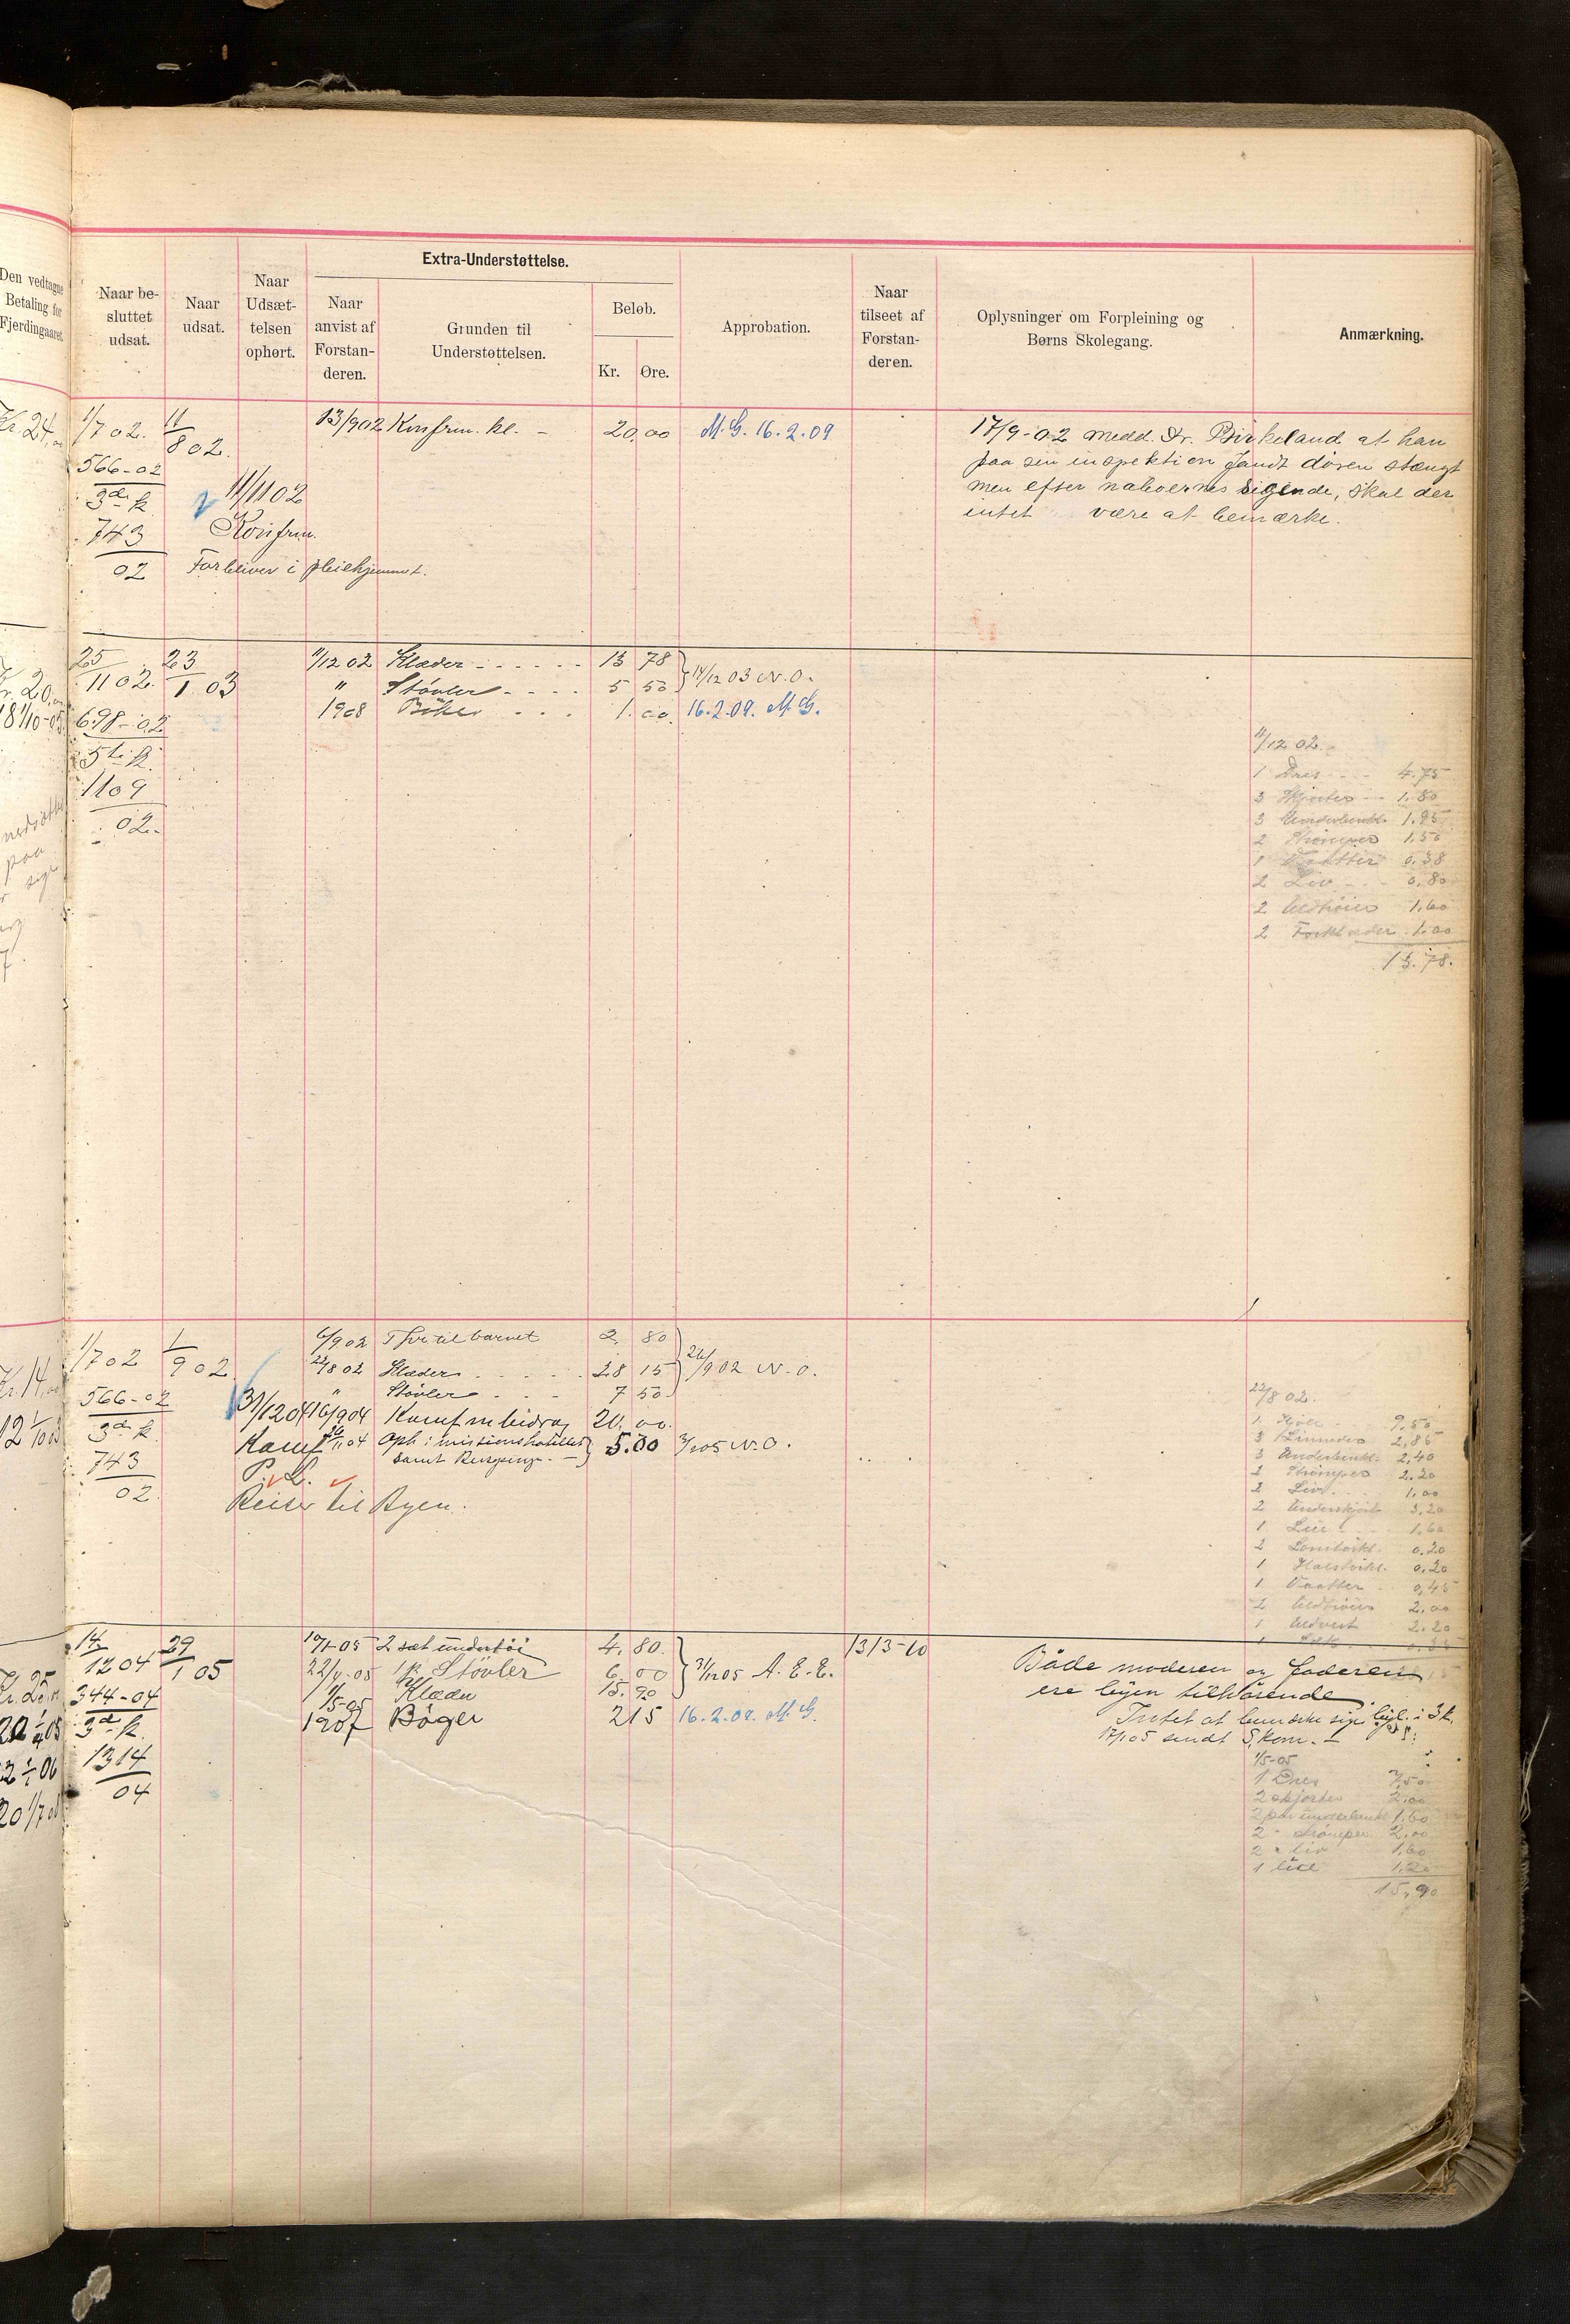 Den vedtagne
Betaling for
Fjerdingaaret.
Naar be-
sluttet
udsat.
Naar
udsat.
Naar
Udsæt-
telsen
ophørt.
Extra-Understøttelse.
Naar
anvist af
Forstan-
deren.
Grunden til
Understøttelsen.
Beløb.
Kr. Øre.
Approbation.
Naar
tilseet af
Forstan-
deren.
Oplysninger om Forpleining og
Børns Skolegang.
Anmærkning.
Kr. 24,00
1/7 02.
566-02
3de k.
743
02
11/8 02.
11/11 02
Konfrm.
Forbliver i pleiehjemmet.
13/9 02 Konfrm. kl. - 20,00 M.G. 16.2.09
17/9-02 medd. Hr. Birkeland at han
paa sin inspektion fandt døren stængt
men efter naboernes sigende, skal der
intet være at bemærke.
Kr. 20,00
25/11 02.
698-02
5te k.
1109
02.
23/1 03
11/12 02 Klæder - - - - - - 13 78
" Støvler - - - - 5 50
14/12 03 N.O.
1908 Bøker - - - 1.00. 16.2.09. M.G.
nedsættes
paa
11/12 02.
1 Dres - - 4.75
3 Skjorter - - 1.80
3 Underbenkl. 1.95
2 Strømper 1.50
1 Vaatter 0.38
2 Liv - - 0.80
2 Uldtrøier 1.60
2 Forklæder 1.00
13.78.
Kr. 14,00
1/7 02
566-02
3de k.
743
02.
1/9 02
6/9 02 Tøi til barnet 2. 80
22/8 02 Klæder - - - - - 28 15
" Støvler - - - 7 50
26/9 02 N.O.
31/12 04
16/9 04 Konf m bidrag 20.00.
Konf.
Oph. i missionshotellet
samt Reisepenge. - 5.00 3/1 05 N.O.
Reiser til Byen.
22/8 02.
1. Kjole - 9,50
3 Linneder 2,85
3 Underbenkl. 2,40
2 Strømper 2.20
2 Liv - 1,00
2 Underskjørt 3,20
1 Lue - 1,60
2 Lomtørkl. 0.20
1 Halstørkl. 0,20
1 Vaatter - 0,45
2 Uldtrøier 2,00
1 Uldvest 2.20
Kr. 25,00
14/12 04
344-04
3de k.
1314
04
29/1 05
19/1-05 2 sæt undertøi 4.80.
22/4-05 1 p. Støvler 6,00
1/5-05 Klæder 15.90
31/12 05 A.E.E.
1907 Bøger 2 15 16.2.09. M.G.
13/3-10
Både moderen og faderen
ere byen tilhørende.
Intet at bemærke sig. Beyl. i 3 k.
17/1 05 sendt S.kom.
1/5-05
1 Dres 7,50
2 skjorter 2.00
2 par underbenkl 1,60
2 " Strømper 2,00
2 " liv 1.60
1 lue 1,20
15,90